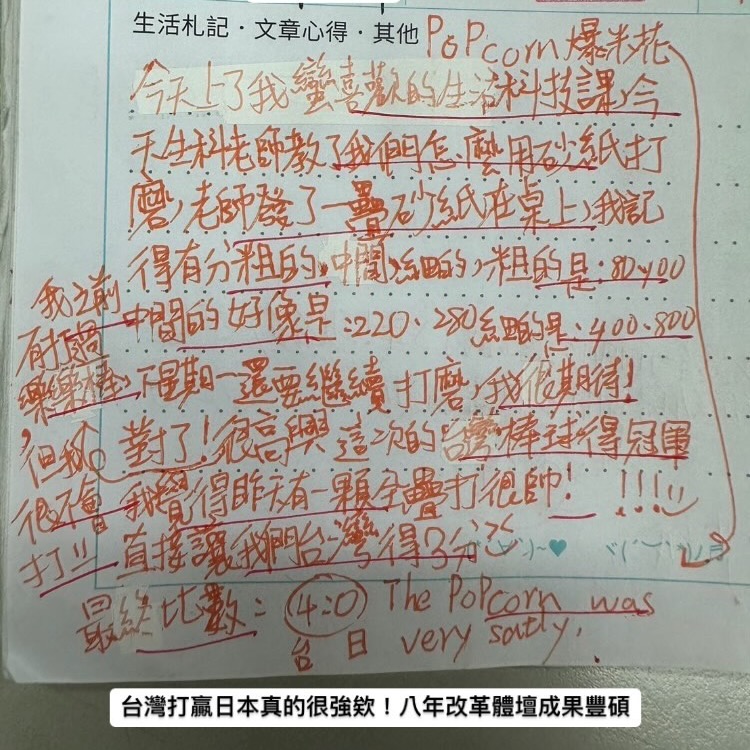 生活札記．文章心得．其他 PoPcorn爆米花
今天上了我蠻喜歡的生活科技課,今
天生科老師教了我們怎麼用砂紙打
磨,老師發了一疊砂紙在桌上,我記
得有分粗的、中間、細的,粗的是:80、100
中間的好像是:220、280細的是:400、800
下星期一還要繼續打磨,我很期待!
對了!很高興這次的台灣棒球得冠軍
我覺得昨天有一顆全壘打很帥! !!!
直接讓我們台灣得3分
最終比數:4:0 The PoPcorn was
台 日 very saltly.
我之前
有打過
樂樂棒,
但我
很不會
打!!
台灣打贏日本真的很強欸！八年改革體壇成果豐碩